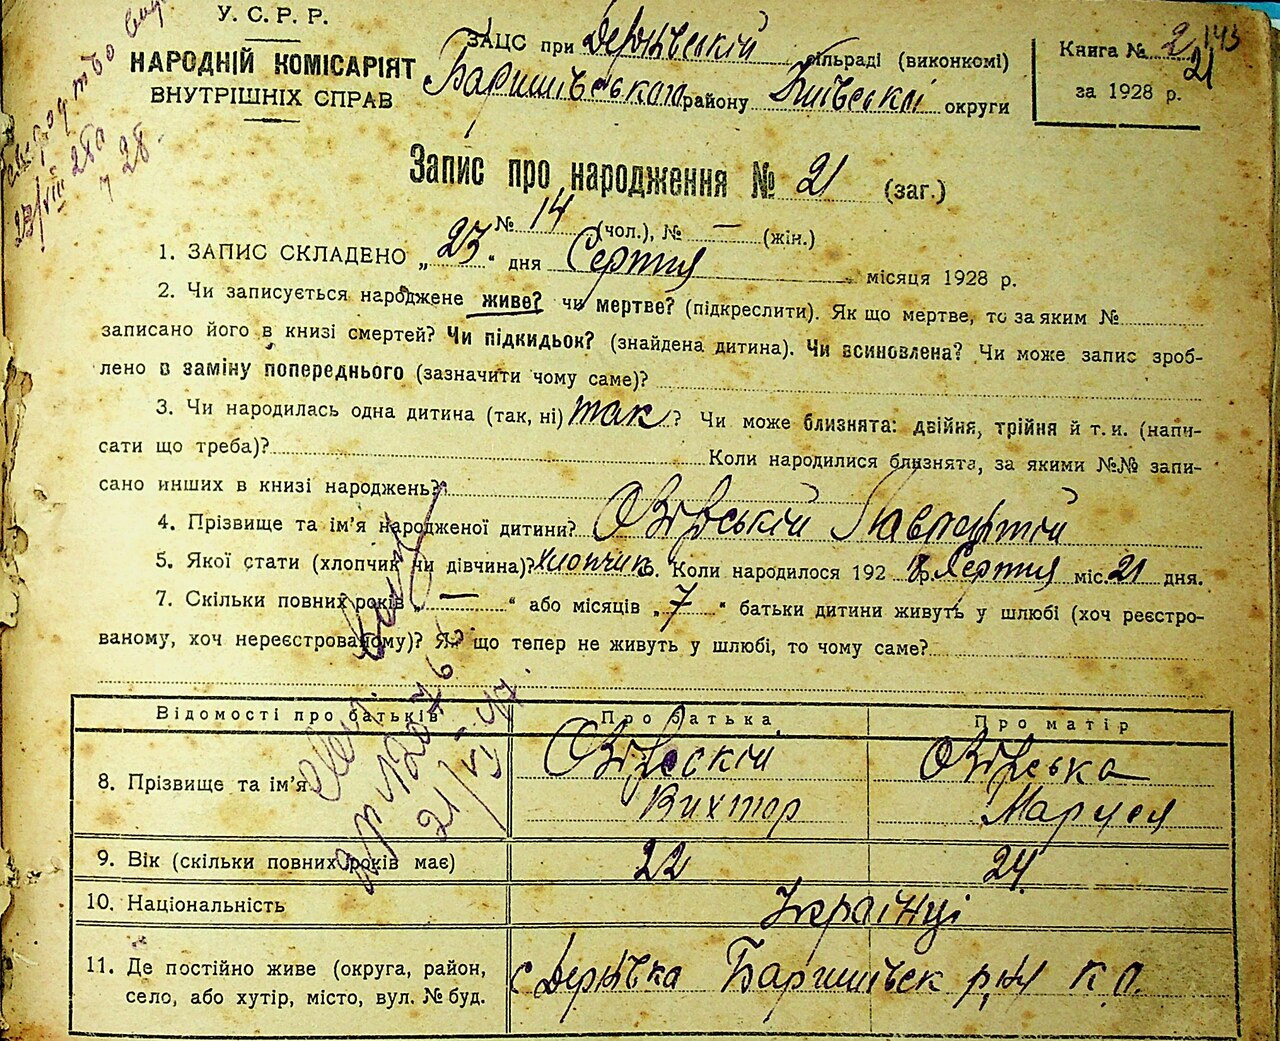 У. С. Р. Р.
НАРОДНІЙ КОМІСАРІЯТ
ВНУТРІШНІХ СПРАВ
ЗАЦС при Дернівській сільраді (виконкомі)
Баришівського району Київської округи
Книга № 2
за 1928 р.
143
21
23/VIII 28 р
Запис про народження № 21 (заг.)
№ 14 (чол.), № — (жін.)
1. ЗАПИС СКЛАДЕНО „23“ дня Серпня місяця 1928 р.
2. Чи записується народжене живе? чи мертве? (підкреслити). Як що мертве, то за яким №
записано його в книзі смертей? Чи підкидьок? (знайдена дитина). Чи всиновлена? Чи може запис зроб-
лено в заміну попереднього (зазначити чому саме)?
3. Чи народилась одна дитина (так, ні) так? Чи може близнята: двійня, трійня й т. и. (напи-
сати що треба)? Коли народилися близнята, за якими №№ запи-
сано инших в книзі народжень?
4. Прізвище та ім’я народженої дитини?
5. Якої стати (хлопчик чи дівчина)? хлопчик 6. Коли народилося 1928 р. Серпня міс. 21 дня.
7. Скільки повних років „—“ або місяців „7“ батьки дитини живуть у шлюбі (хоч реєстро-
ваному, хоч нереєстрованому)? Як що тепер не живуть у шлюбі, то чому саме?
Відомості про батьків Про батька Про матір
8. Прізвище та ім’я
Вихтор Маруся
9. Вік (скільки повних років має) 22 24
10. Національність Українці
11. Де постійно живе (округа, район,
село, або хутір, місто, вул. № буд.
с Дернівка Баришівск р,ну К. О.